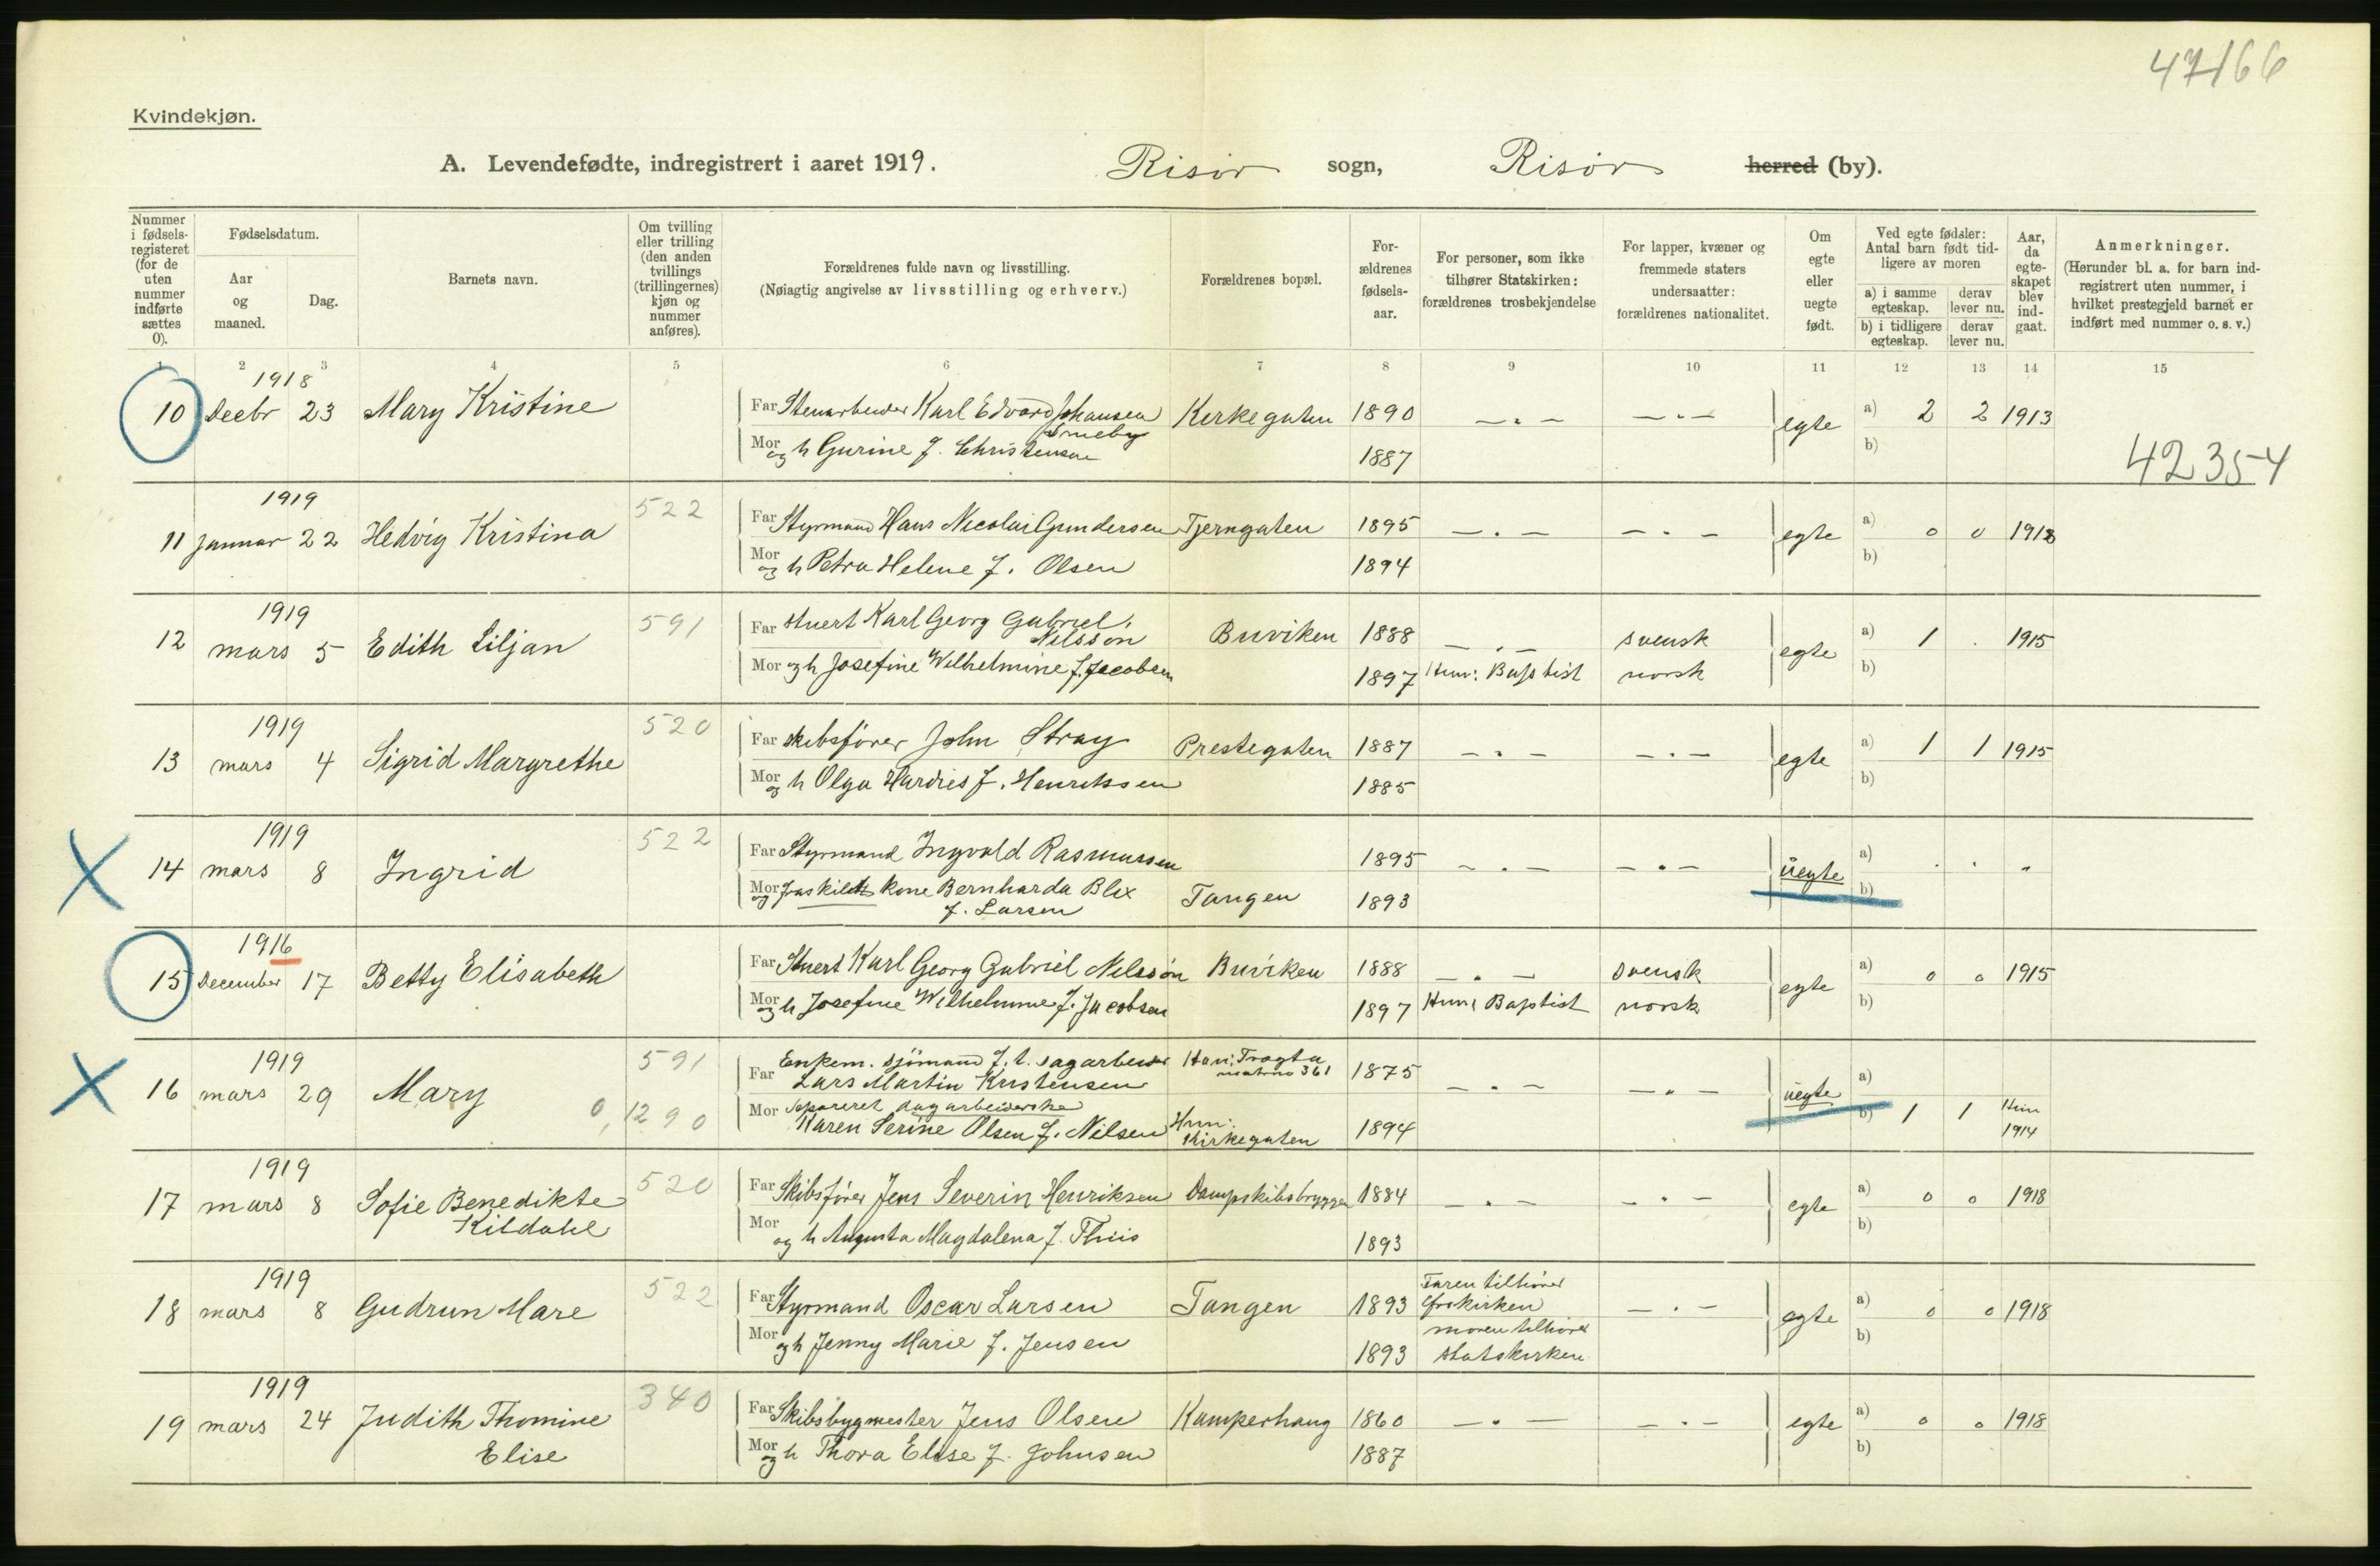 47166
Kvindekjøn.
A. Levendefødte, indregistrert i aaret 1919. Risør sogn, Risør herred (by).
Nummer i fødselsregisteret (for de uten nummer indførte sættes 0).
Fødselsdatum.
Aar og maaned.
Dag.
Barnets navn.
Om tvilling eller trilling (den anden tvillings (trillingernes) kjøn og nummer anføres).
Forældrenes fulde navn og livsstilling.
(Nøiagtig angivelse av livsstilling og erhverv.)
Forældrenes bopæl.
Forældrenes fødselsaar.
For personer, som ikke tilhører Statskirken: forældrenes trosbekjendelse
For lapper, kvæner og fremmede staters undersaatter: forældrenes nationalitet.
Om egte eller uegte født.
Ved egte fødsler: Antal barn født tidligere av moren
a) i samme egteskap.
derav lever nu.
b) i tidligere egteskap.
derav lever nu.
Aar, da egteskapet blev indgaat.
Anmerkninger.
(Herunder bl. a. for barn indregistrert uten nummer, i hvilket prestegjeld barnet er indført med nummer o. s. v.)
1 2 3 4 5 6 7 8 9 10 11 12 13 14 15
1918
10 Decbr 23 Mary Kristine Far Stenarbeider Karl Edvard Johansen Kirkegaten 1890 — " — — " — egte a) 2 2 1913
Smeby
Mor og h Gurine f. Christensen 1887 b)
42354
1919 522
11 Januar 22 Hedvig Kristina Far Styrmand Hans Nicolai Gundersen Tjerngaten 1895 — " — — " — egte a) 0 0 1918
Mor og h Petra Helene f. Olsen 1894 b)
1919 591
12 mars 5 Edith Liljan Far stuert Karl Georg Gabriel Buviken 1888 — " — svensk egte a) 1 . 1915
Nilsson
Mor og h Josefine Wilhelmine f. Jacobsen 1897 Hun: Baptist norsk b)
1919 520
13 mars 4 Sigrid Margrethe Far skibsfører John Stray Prestegaten 1887 — " — — " — egte a) 1 1 1915
Mor og h Olga Hardies f. Henriksen 1885 b)
1919 522
14 mars 8 Ingrid Far Styrmand Ingvald Rasmussen 1895 — " — — " — uegte a) . . "
Mor og fraskildt kone Bernharda Blix Tangen 1893 b)
f. Larsen
1916
15 December 17 Betty Elisabeth Far Stuert Karl Georg Gabriel Nilsson Buviken 1888 — " — svensk egte a) 0 0 1915
Mor og h Josefine Wilhelmine f. Jacobsen 1897 Hun: Baptist norsk b)
1919 591
16 mars 29 Mary Far Enkem. sjømand f. t. sagarbeider Han: Tragta
Lars Martin Kristensen matrno 361 1875 — " — — " — uegte a)
0, 1290 Mor separeret dagarbeiderske
Karen Serine Olsen f. Nilsen Hun: Kirkegaten 1894 b) 1 1 Hun 1914
1919 520
17 mars 8 Sofie Benedikte Far Skibsfører Jens Severin Henriksen Dampskibsbryggen 1884 — " — — " — egte a) 0 0 1918
Kildahl
Mor og h Augusta Magdalena f. Thiis 1893 b)
1919 522
18 mars 8 Gudrun Mare Far Styrmand Oscar Larsen Tangen 1893 Faren tilhører frikirken — " — egte a) 0 0 1918
Mor og h Jenny Marie f. Jensen 1893 moren tilhører statskirken b)
1919 340
19 mars 24 Judith Thomine Far Skibsbygmester Jens Olsen Kamperhaug 1860 — " — — " — egte a) 0 0 1918
Elise
Mor og h Thora Elise f. Johnsen 1887 b)